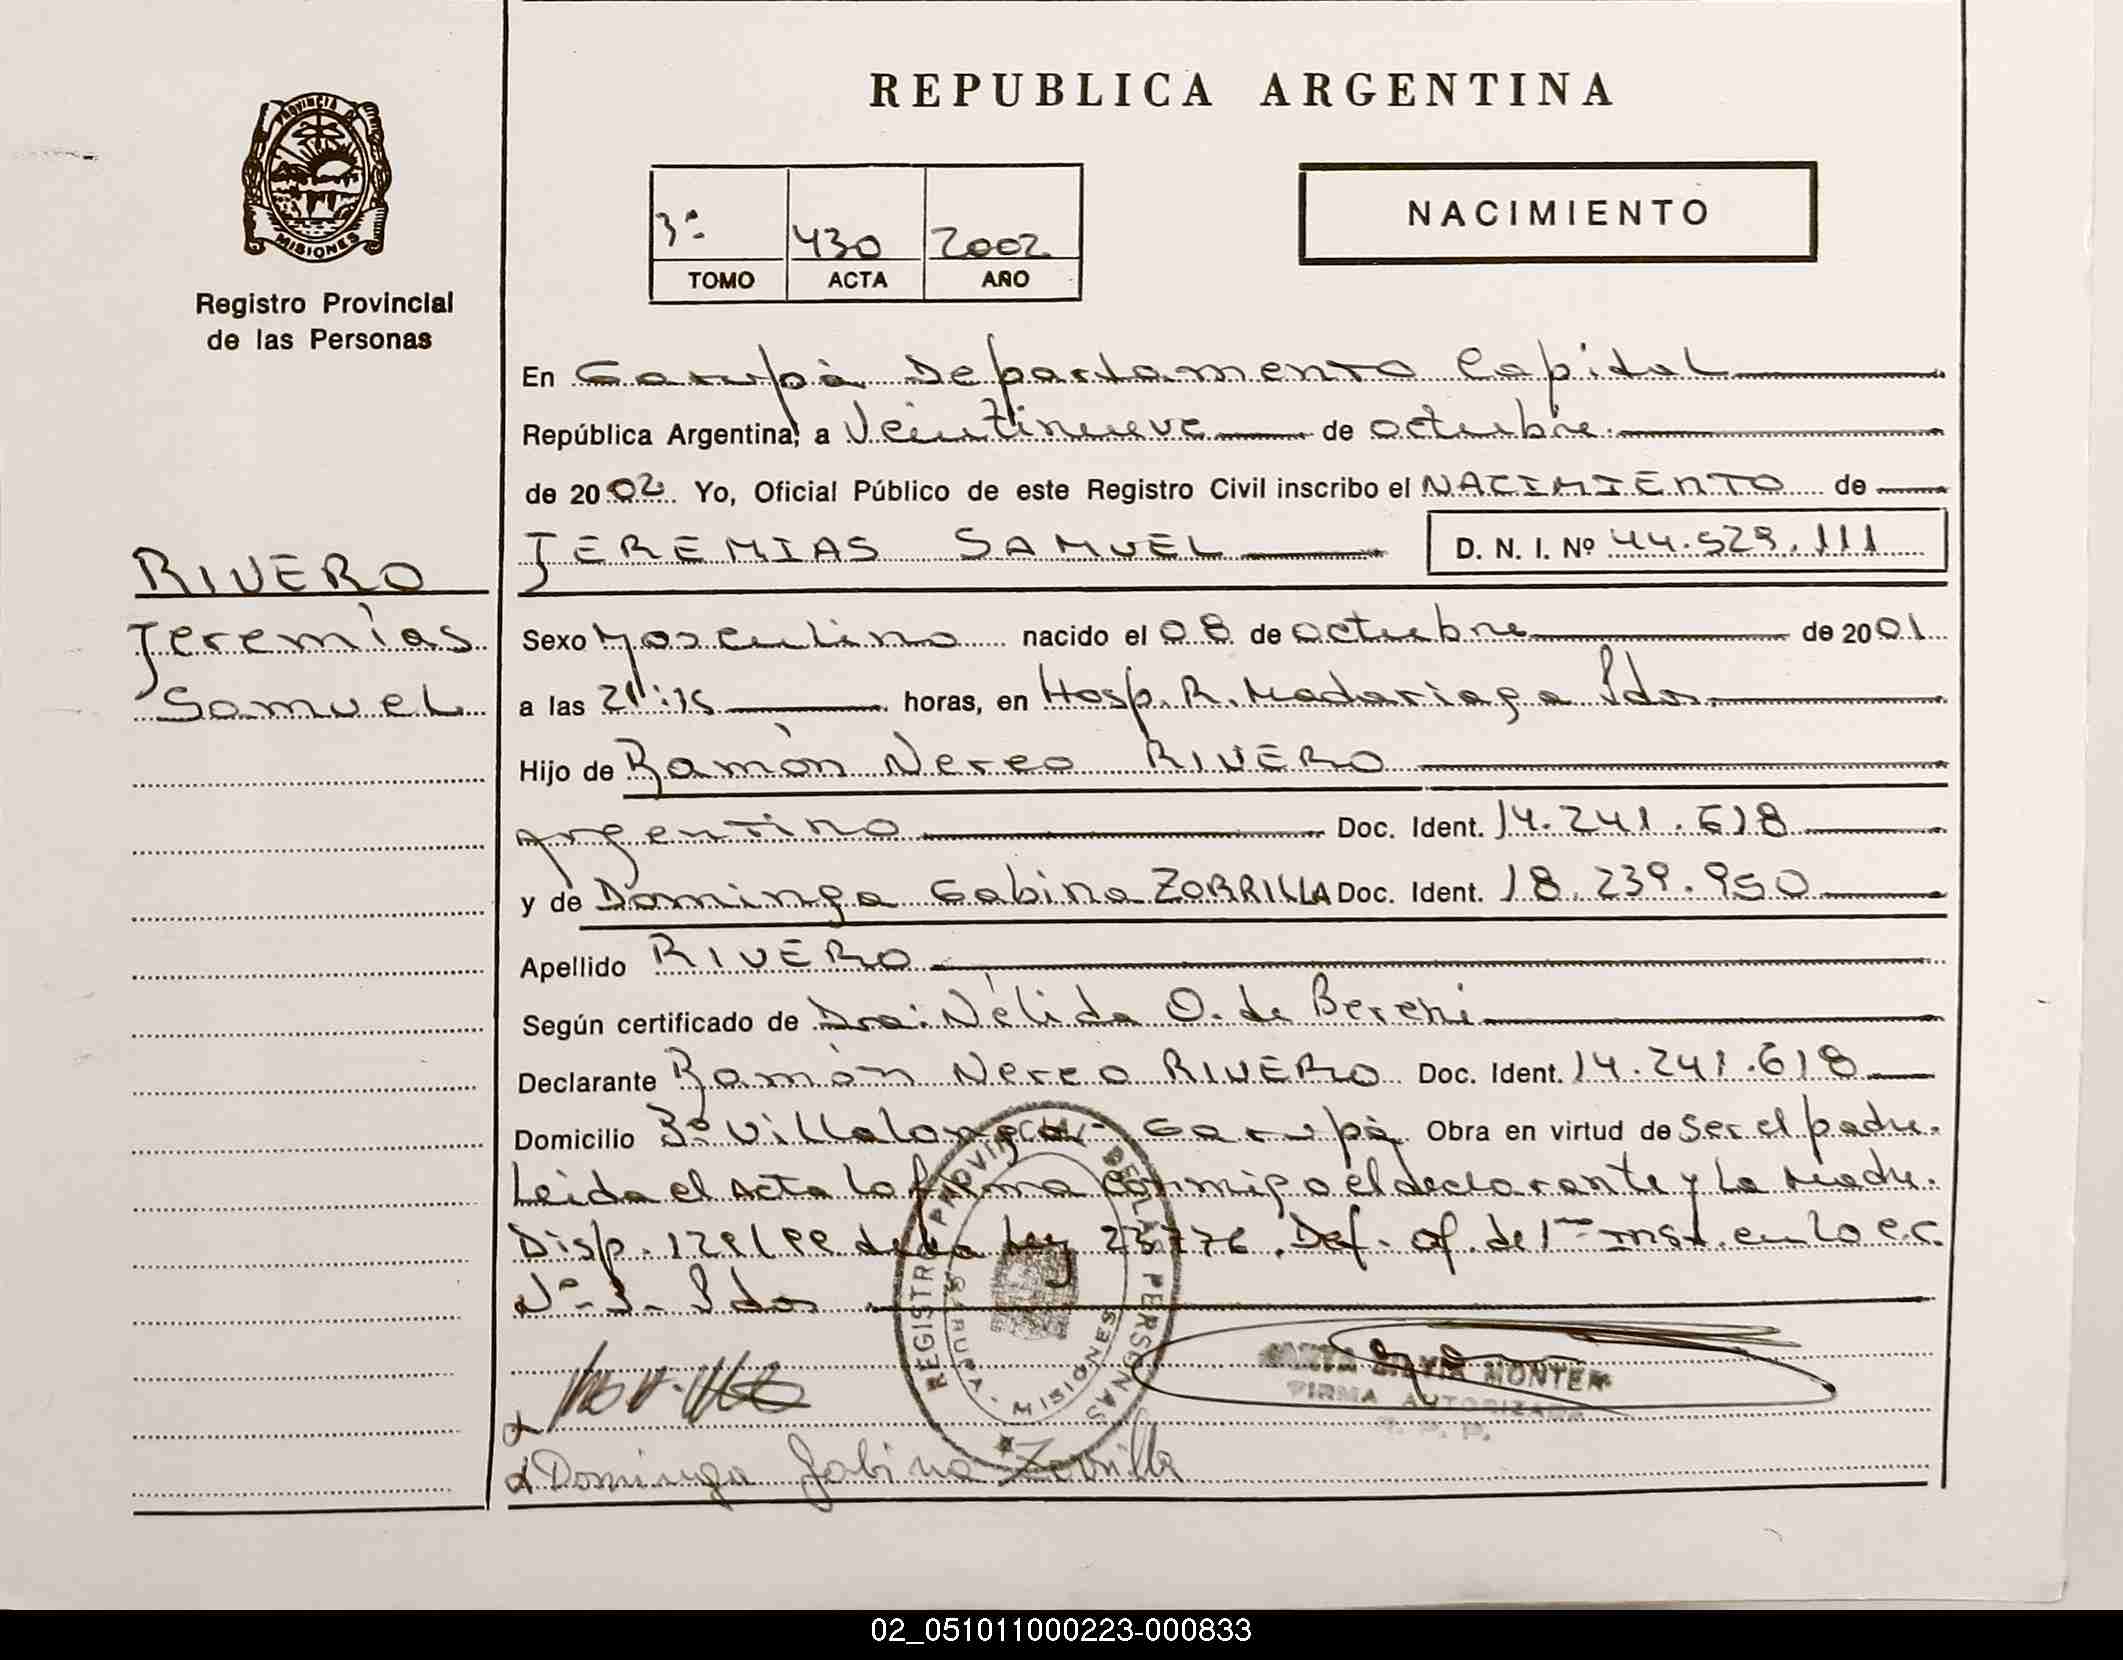 REPUBLICA ARGENTINA
PROVINCIA DE
MISIONES
Registro Provincial
de las Personas
3º 430 2002
TOMO ACTA AÑO
NACIMIENTO
En Garupá Departamento Capital
República Argentina, a Veintinueve de octubre
de 2002. Yo, Oficial Público de este Registro Civil inscribo el NACIMIENTO de
JEREMIAS SAMUEL D. N. I. Nº 44.529.111
RIVERO
Jeremías
Samuel
Sexo Masculino nacido el 08 de octubre de 2001
a las 21:15 horas, en Hosp. R. Madariaga Pdas.
Hijo de Ramón Nereo RIVERO
Argentino Doc. Ident. 14.241.618
y de Dominga Gabina ZORRILLA Doc. Ident. 18.239.950
Apellido RIVERO
Según certificado de Dra: Nélida O. de
Declarante Ramón Nereo RIVERO Doc. Ident. 14.241.618
Domicilio Bº Villalonga - Garupá. Obra en virtud de Ser el padre.
Leida el Acta la firma conmigo el declarante y La Madre.
Disp. de la Ley 23776. Def. of. de 1ra inst. en lo c.c.
Nº 3 - Pdas
REGISTRO PROVINCIAL DE LAS PERSONAS
GARUPA - MISIONES
SILVIA MONTER
FIRMA AUTORIZADA
R. P. P.
Dominga Gabina Zorrilla
02_051011000223-000833